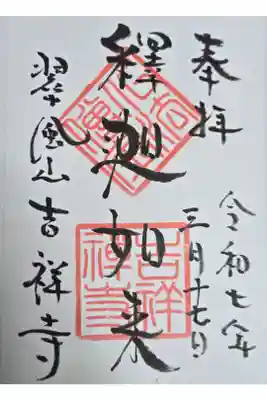 奉拝
令和七年
三月十七日
釋迦如来
翠風山吉祥寺